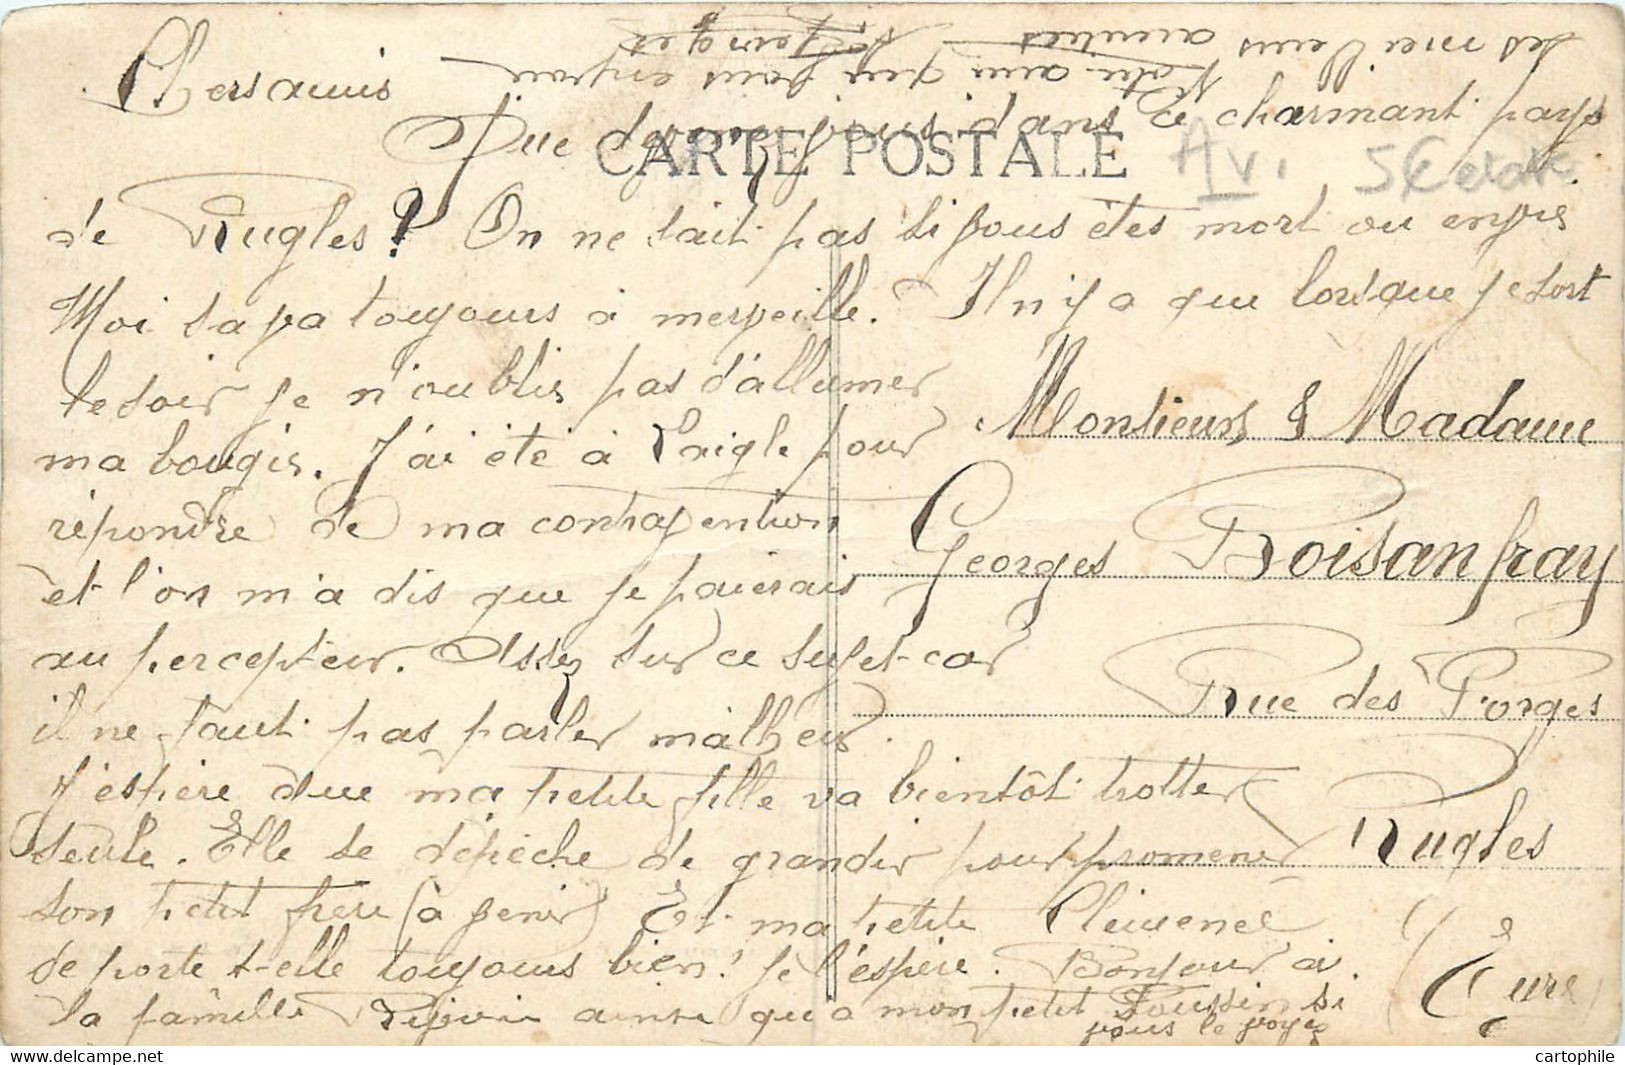 Chers amis
Que devenez vous dans ce charmant pays
CARTE POSTALE
de Rugles? On ne sait pas si vous êtes mort ou envie
Moi sa va toujours à merveille. Il n'y a que lorsque je sort
le soir je n'oublis pas d'allumer
ma bougie. J'ai été à Laigle pour
répondre de ma contravention
et l'on m'a dis que je paierais
au percepteur. Assez sur ce sujet car
il ne faut pas parler malheur.
J'espère que ma petite fille va bientôt trotter
seule. Elle se dépêche de grandir pour promener
son petit frère (à venir) Et ma petite Clémence
se porte t-elle toujours bien! je l'espère. Bonjour à
la famille ainsi qu'a mon petit Poussin si
vous le voyez
Votre ami qui vous envoie
ses meilleurs amitiés
Monsieurs & Madame
Georges Boisanfray
Rue des Forges
Rugles
(Eure)
Av.
5€
cartophile